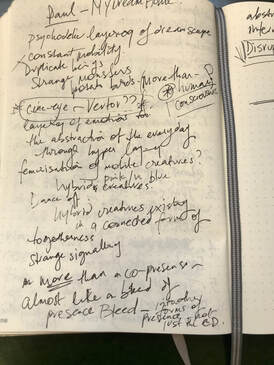 Paul – My Dream Time
psychedelic layering of dreamscape
constant mobility
Duplicate beings
Strange monsters
birds – more than-
human
conscious
cine-eye – Vertov??
layering of emotions too
the abstraction of the everyday
through hyper layering
feminisation of mobile creatures?
hybrid pink / blue
creatures.
Dance off
Hybrid creatures existing
in a connected form of
togetherness
Strange signalling
more than a co-presence –
almost like a bleed of
presence Bleed –
forms of
presence – not
just in CD.
Disrup